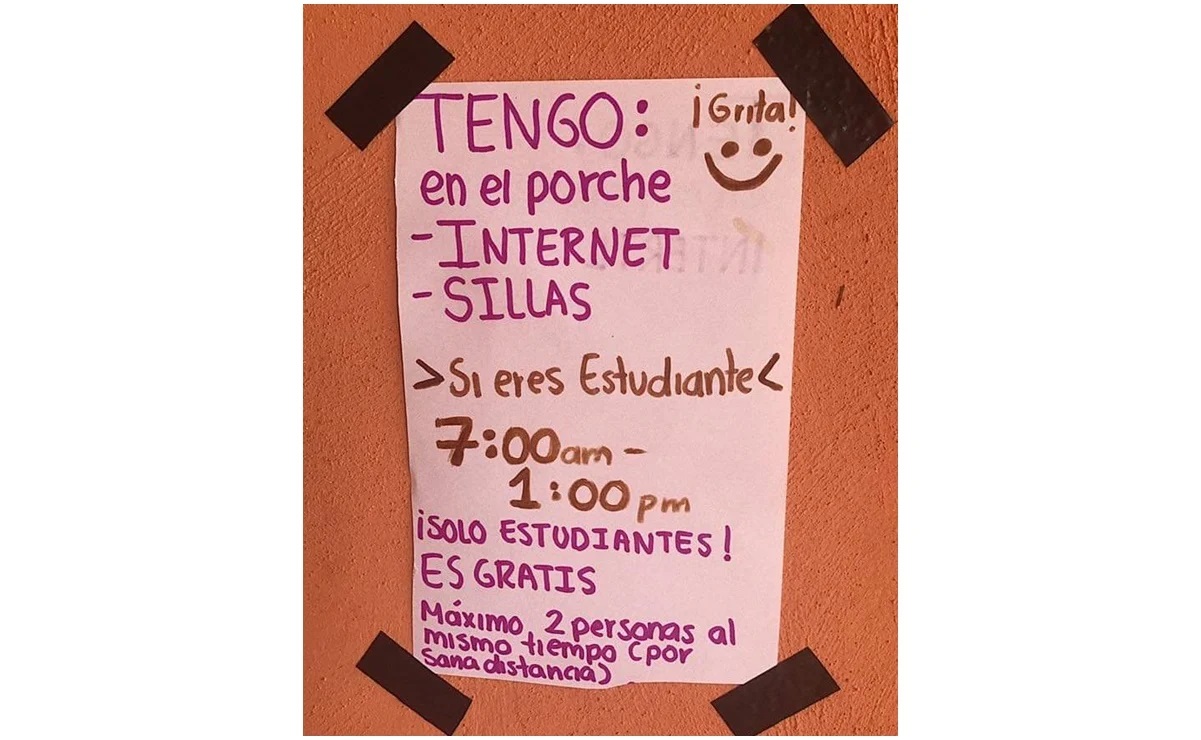 TENGO:
¡Grita!
en el porche
- INTERNET
- SILLAS
>Si eres Estudiante<
7:00am -
1:00pm
¡SOLO ESTUDIANTES!
ES GRATIS
Máximo 2 personas al
mismo tiempo (por
sana distancia)